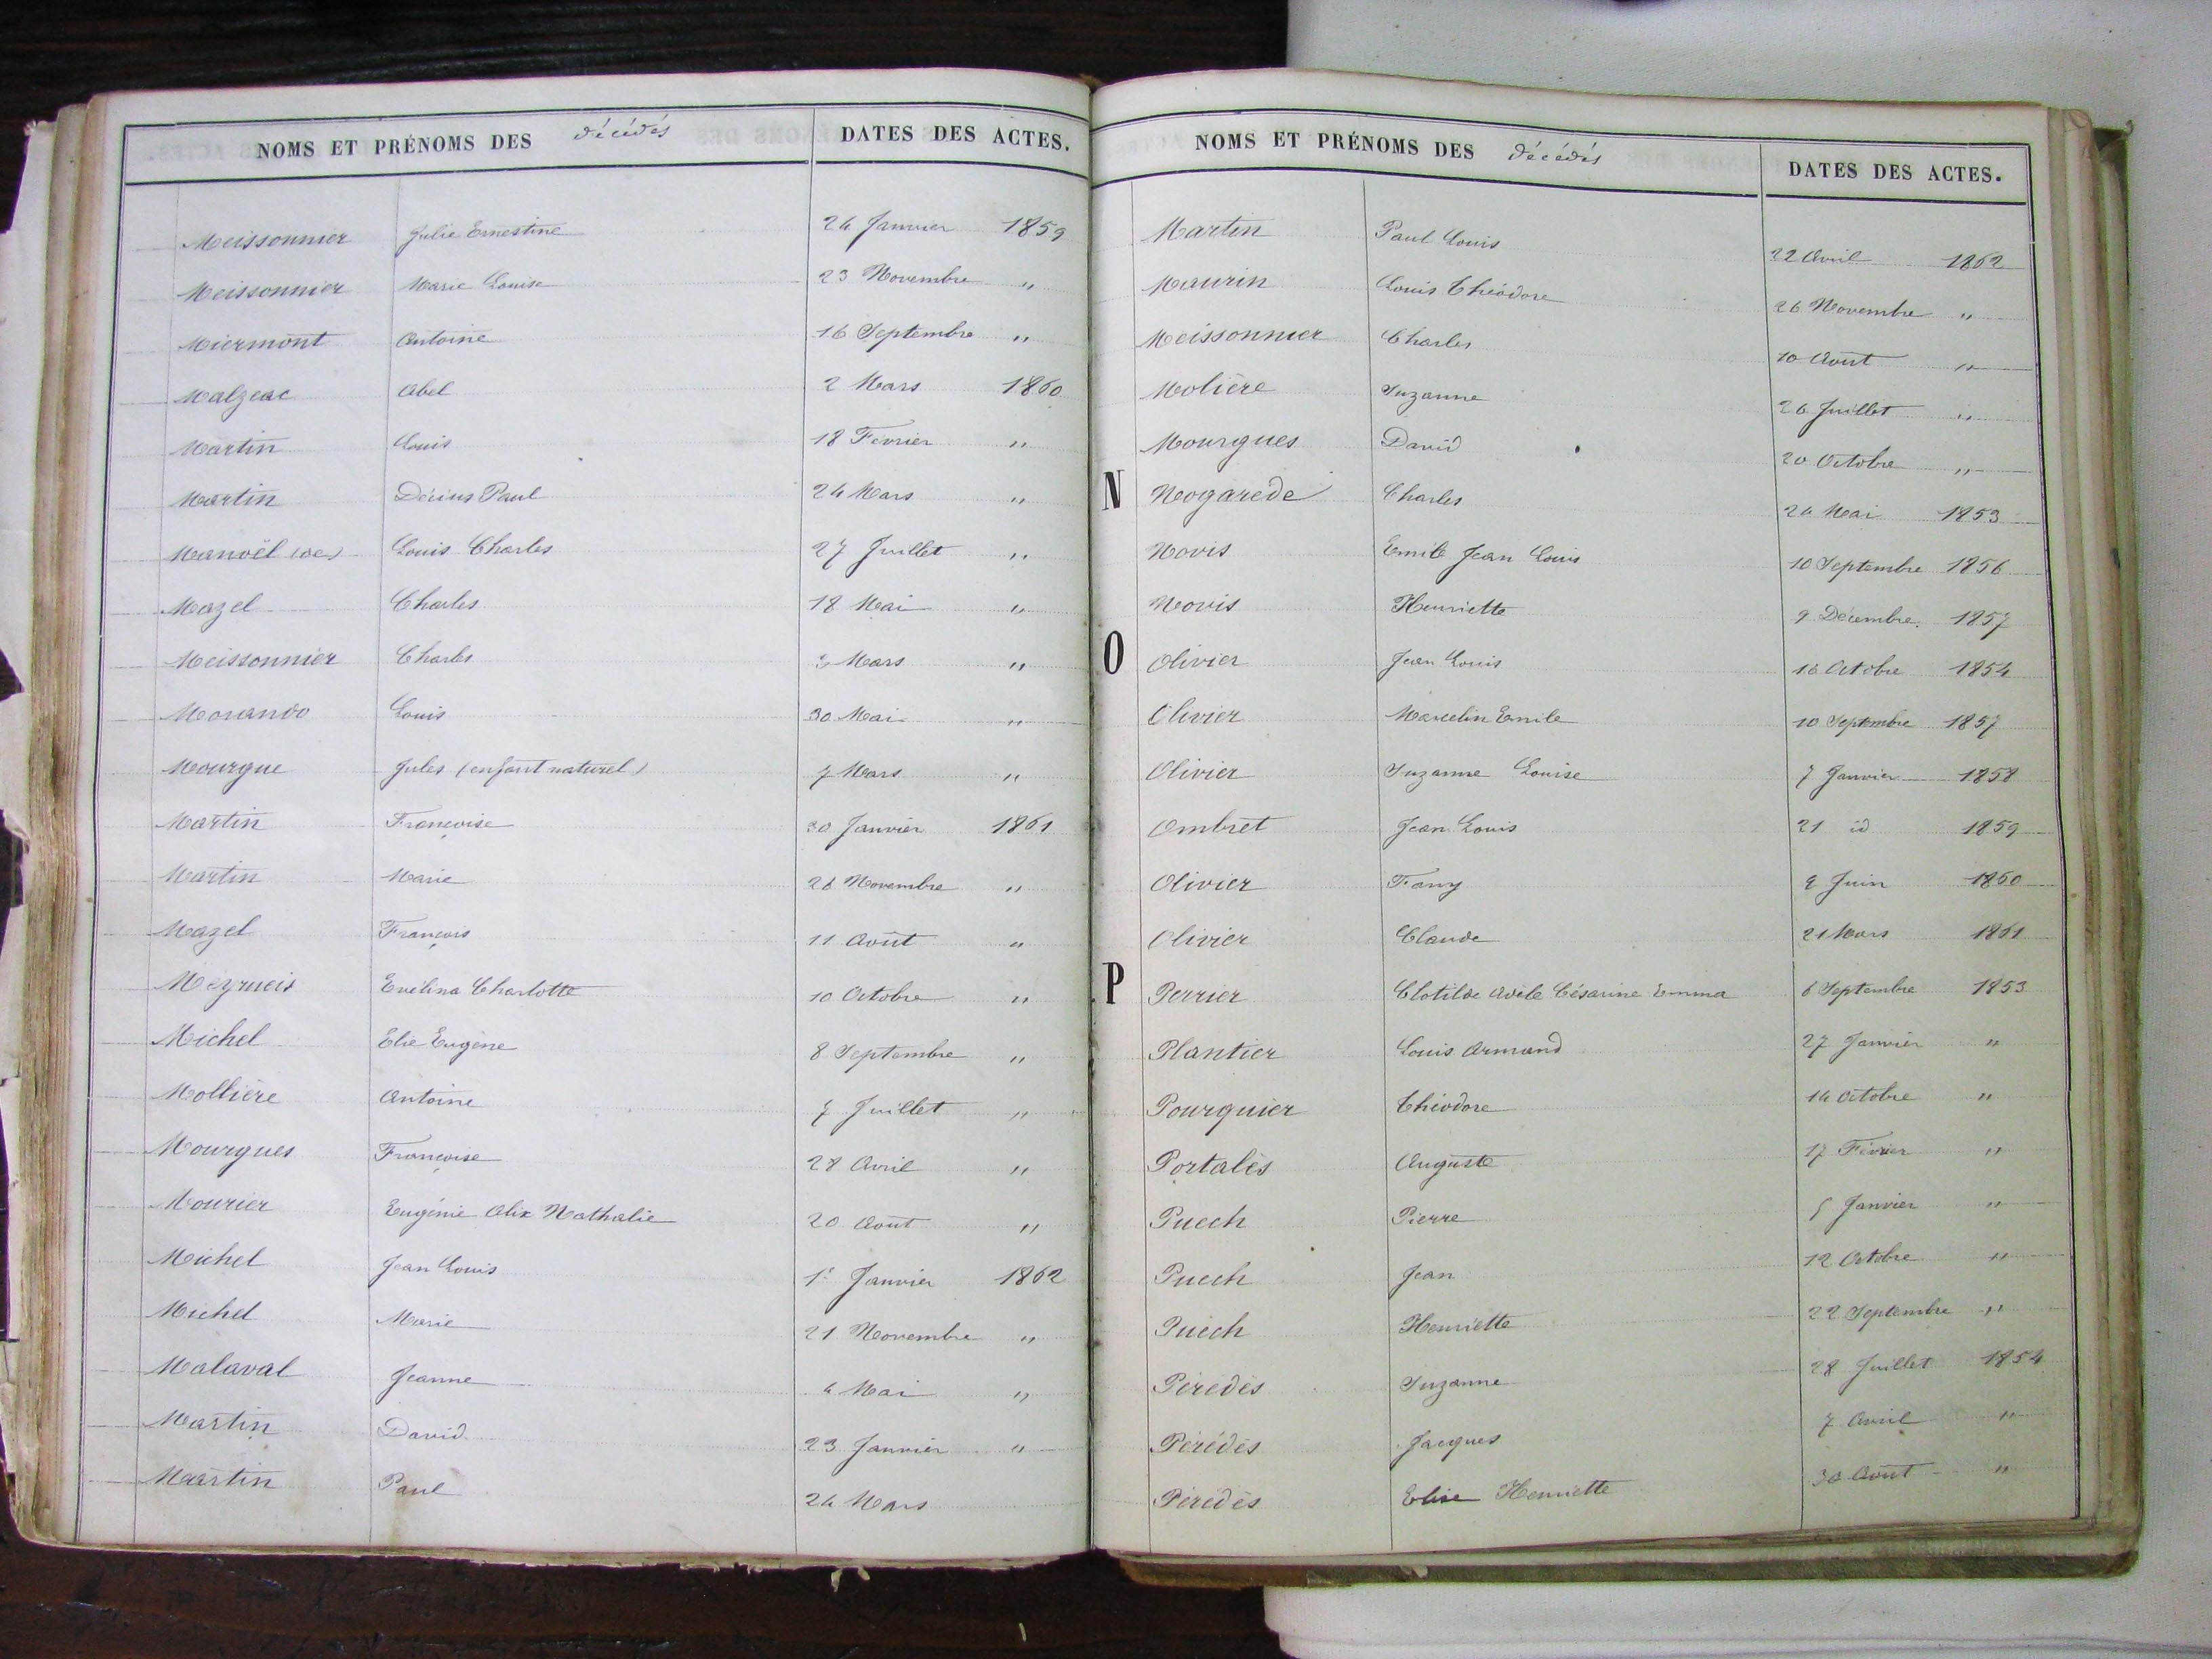 NOMS ET PRÉNOMS DES décédés DATES DES ACTES.
Meissonnier Julie Ernestine 24 Janvier 1859
Meissonnier Marie Louise 23 Novembre "
Miermont Antoine 16 Septembre "
Malzeac Abel 2 Mars 1860
Martin Louis 18 Février "
Martin Décius Paul 24 Mars "
Manoël (de) Louis Charles 27 Juillet "
Mazel Charles 18 Mai "
Meissonnier Charles 3 Mars "
Morando Louis 30 Mai "
Mourgue Jules (enfant naturel) 7 Mars "
Martin Françoise 30 Janvier 1861
Martin Marie 28 Novembre "
Mazel François 11 Août "
Meyrueis Evélina Charlotte 10 Octobre "
Michel Elie Eugène 8 Septembre "
Mollière Antoine 7 Juillet "
Mourgues Françoise 28 Avril "
Mourier Eugénie Alix Nathalie 20 Août "
Michel Jean Louis 1er Janvier 1862
Michel Marie 21 Novembre "
Malaval Jeanne 4 Mai "
Martin David 23 Janvier "
Martin Paul 24 Mars
NOMS ET PRÉNOMS DES décédés DATES DES ACTES.
Martin Paul Louis 22 Avril 1862
Maurin Louis Théodore 26 Novembre "
Meissonnier Charles 10 Août "
Molière Suzanne 26 Juillet "
Mourgues David 20 Octobre "
N Nogarède Charles 24 Mai 1853
Novis Emile Jean Louis 10 Septembre 1856
Novis Henriette 9 Décembre 1857
O Olivier Jean Louis 16 Octobre 1854
Olivier Marcelin Emile 10 Septembre 1857
Olivier Suzanne Louise 7 Janvier 1858
Ombret Jean Louis 21 id 1859
Olivier Fany Juin 1860
Olivier Claude 21 Mars 1861
P Perrier Clotilde Adèle Césarine Emma 6 Septembre 1853
Plantier Louis Armand 27 Janvier "
Pourquier Théodore 14 Octobre "
Portalès Auguste 17 Février "
Puech Pierre 5 Janvier "
Puech Jean 12 Octobre "
Puech Henriette 22 Septembre "
Pérédès Suzanne 28 Juillet 1854
Pérédès Jacques 7 Avril "
Pérédès Elise Henriette 30 Août "